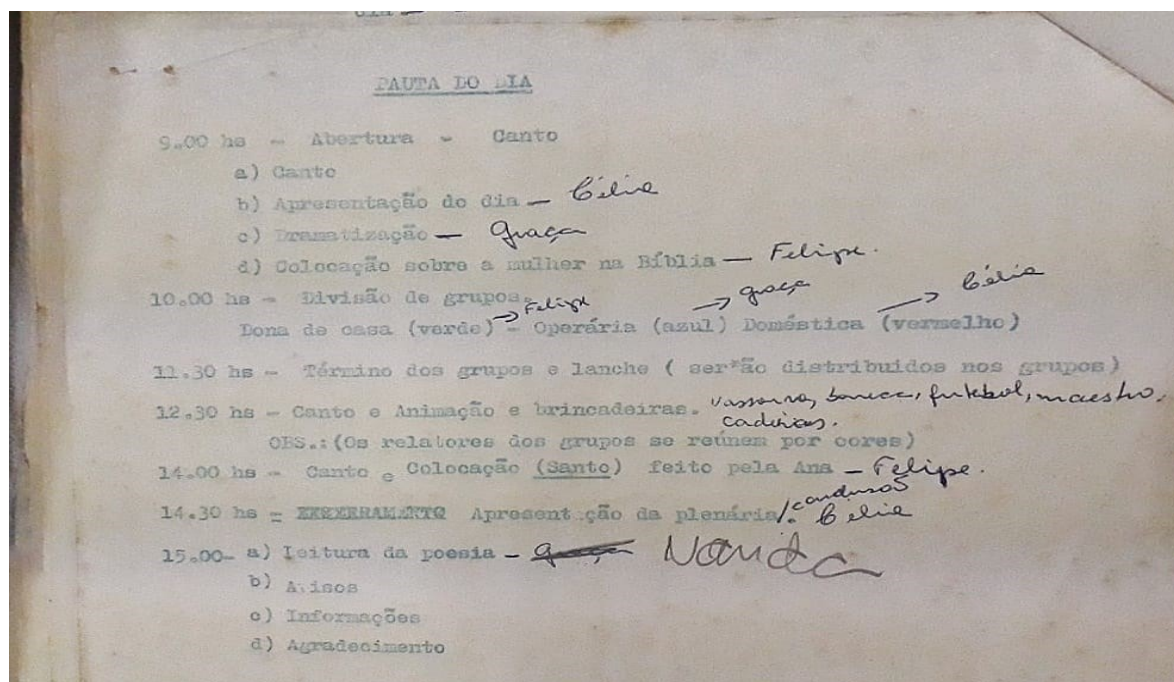 PAUTA DO DIA
9.00 hs - Abertura - Canto
a) Canto
b) Apresentação do dia — Célia
c) Dramatização — Graça
d) Colocação sobre a mulher na Bíblia — Felipe.
10.00 hs - Divisão de grupos.
→ Felipe → Graça → Célia
Dona de casa (verde) - Operária (azul) Doméstica (vermelho)
11.30 hs - Término dos grupos e lanche ( ser*ão distribuidos nos grupos)
12.30 hs - Canto e Animação e brincadeiras. vassoura, boneca, futebol, maestro.
cadeiras.
OBS.:(Os relatores dos grupos se reúnem por cores)
14.00 hs - Canto e Colocação (Santo) feito pela Ana — Felipe.
14.30 hs = Apresent ção da plenária/. conclusão
Célia
15.00- a) Leitura da poesia - Graça Nanda
b) Avisos
c) Informações
d) Agradecimento